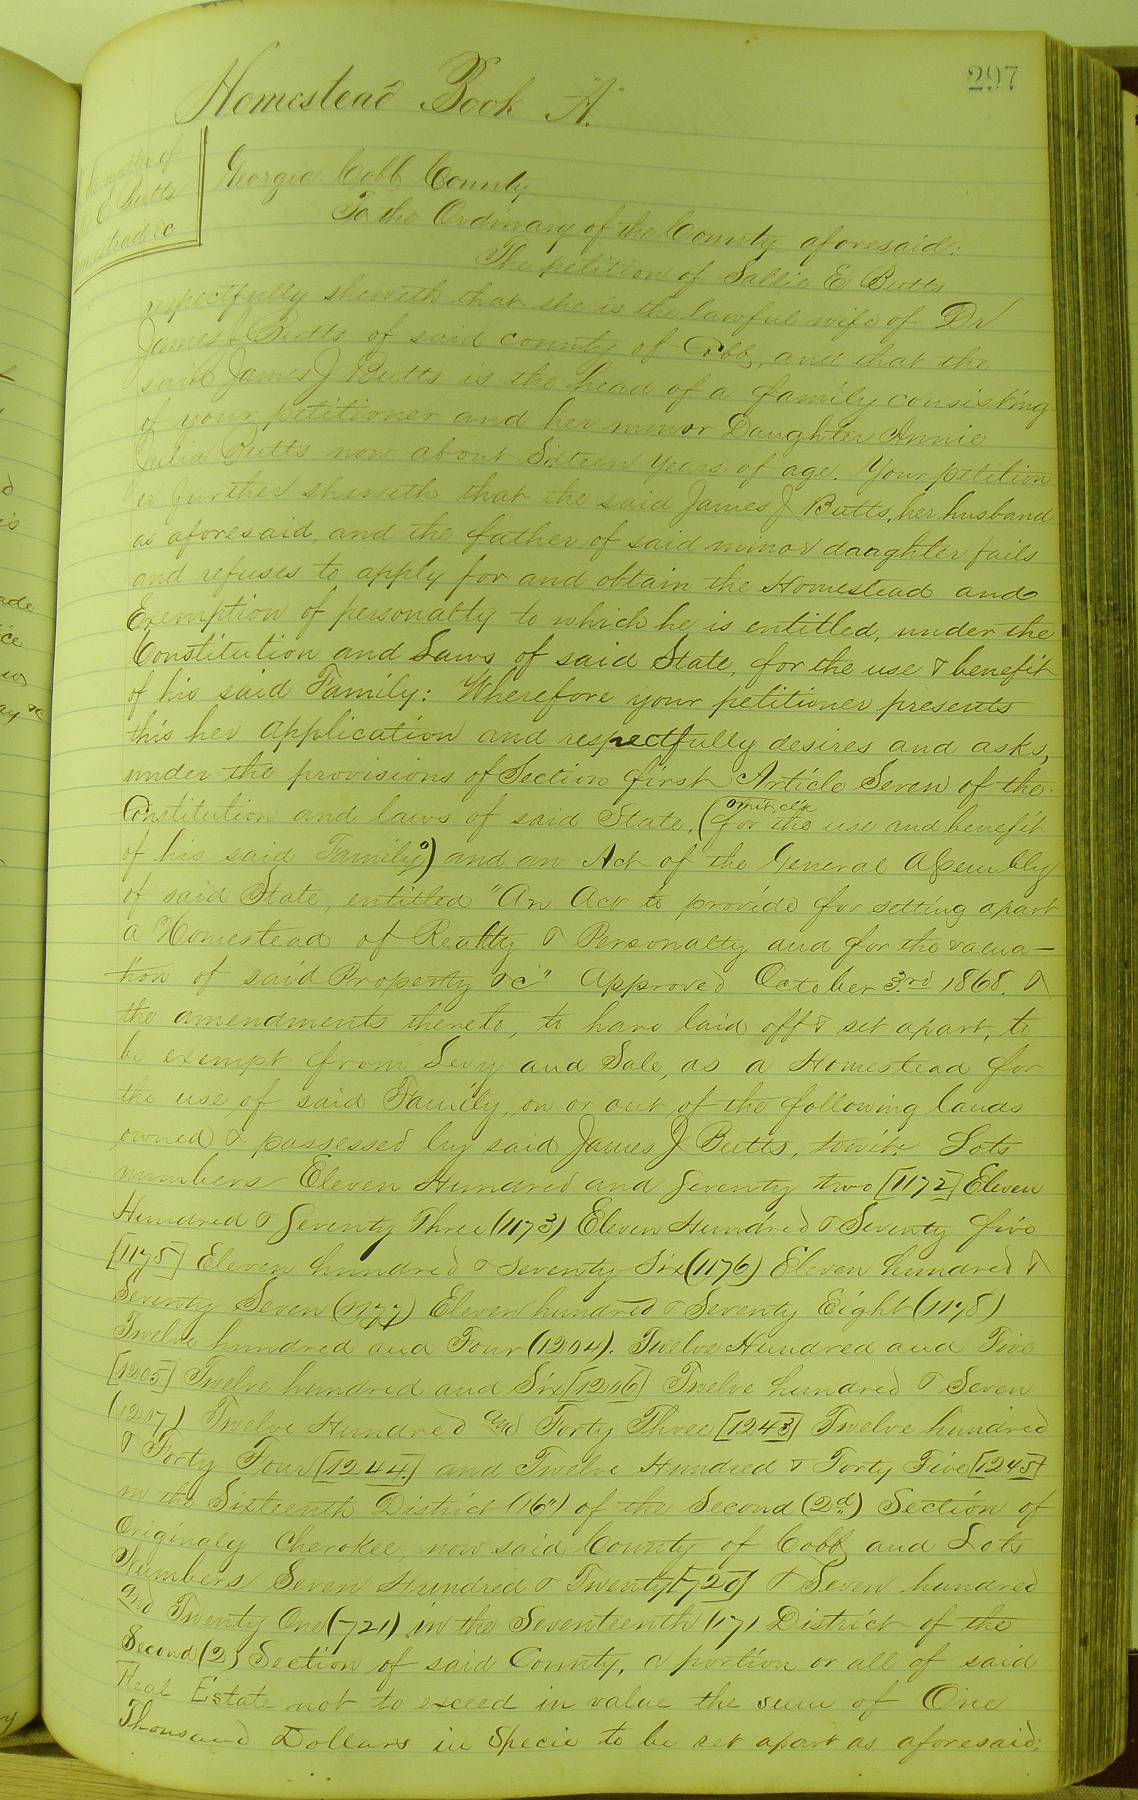 297
Homestead Book "A."
matter of
E Butts
Homestead &c
Georgia Cobb County
To the Ordinary of the County aforesaid:
The petition of Sallie E Butts
respectfully sheweth that she is the lawful wife of Dr
James J Butts of said county of Cobb, and that the
said James J Butts is the head of a family consisting
of your petitioner and her minor Daughter Annie
Julia Butts now about Sixteen years of age. Your petition
er further sheweth that the said James J Butts, her husband
as aforesaid, and the father of said minor daughter fails
and refuses to apply for and obtain the Homestead and
Exemption of personalty to which he is entitled, under the
Constitution and Laws of said State, for the use & benefit
of his said Family: Wherefore your petitioner presents
this her application and respectfully desires and asks,
under the provisions of Section first Article Seven of the
Constitution and laws of said State, (for the use and benefit
of his said Family) and an Act of the General Assembly
of said State, entitled "An Act to provide for setting apart
a Homestead of Realty & Personalty and for the valua-
tion of said Property &c" Approved October 3rd 1868. &
the amendments thereto, to have laid off & set apart, to
be exempt from Levy and Sale, as a Homestead for
the use of said Family, on or out of the following lands
owned & possessed by said James J Butts, towit: Lots
numbers Eleven Hundred and Seventy two [1172] Eleven
Hundred & Seventy Three (1173) Eleven Hundred & Seventy five
[1175] Eleven hundred & seventy Six (1176) Eleven hundred &
Seventy Seven (1177) Eleven hundred & Seventy Eight (1178)
Twelve hundred and Four (1204). Twelve Hundred and Five
[1205] Twelve hundred and Six [1206] Twelve hundred & Seven
(1207) Twelve Hundred and Forty Three [1243] Twelve hundred
& Forty Four [1244.] and Twelve Hundred & Forty Five [1245]
in the Sixteenth District (16") of the Second (2d) Section of
Originaly Cherokee, now said County of Cobb and Lots
Numbers Seven Hundred & Twenty [720] & Seven hundred
and Twenty One (721) in the Seventeenth (17) District of the
Second (2) Section of said County, a portion or all of said
Real Estate not to exceed in value the sum of One
Thousand Dollars in Specie to be set apart as aforesaid;